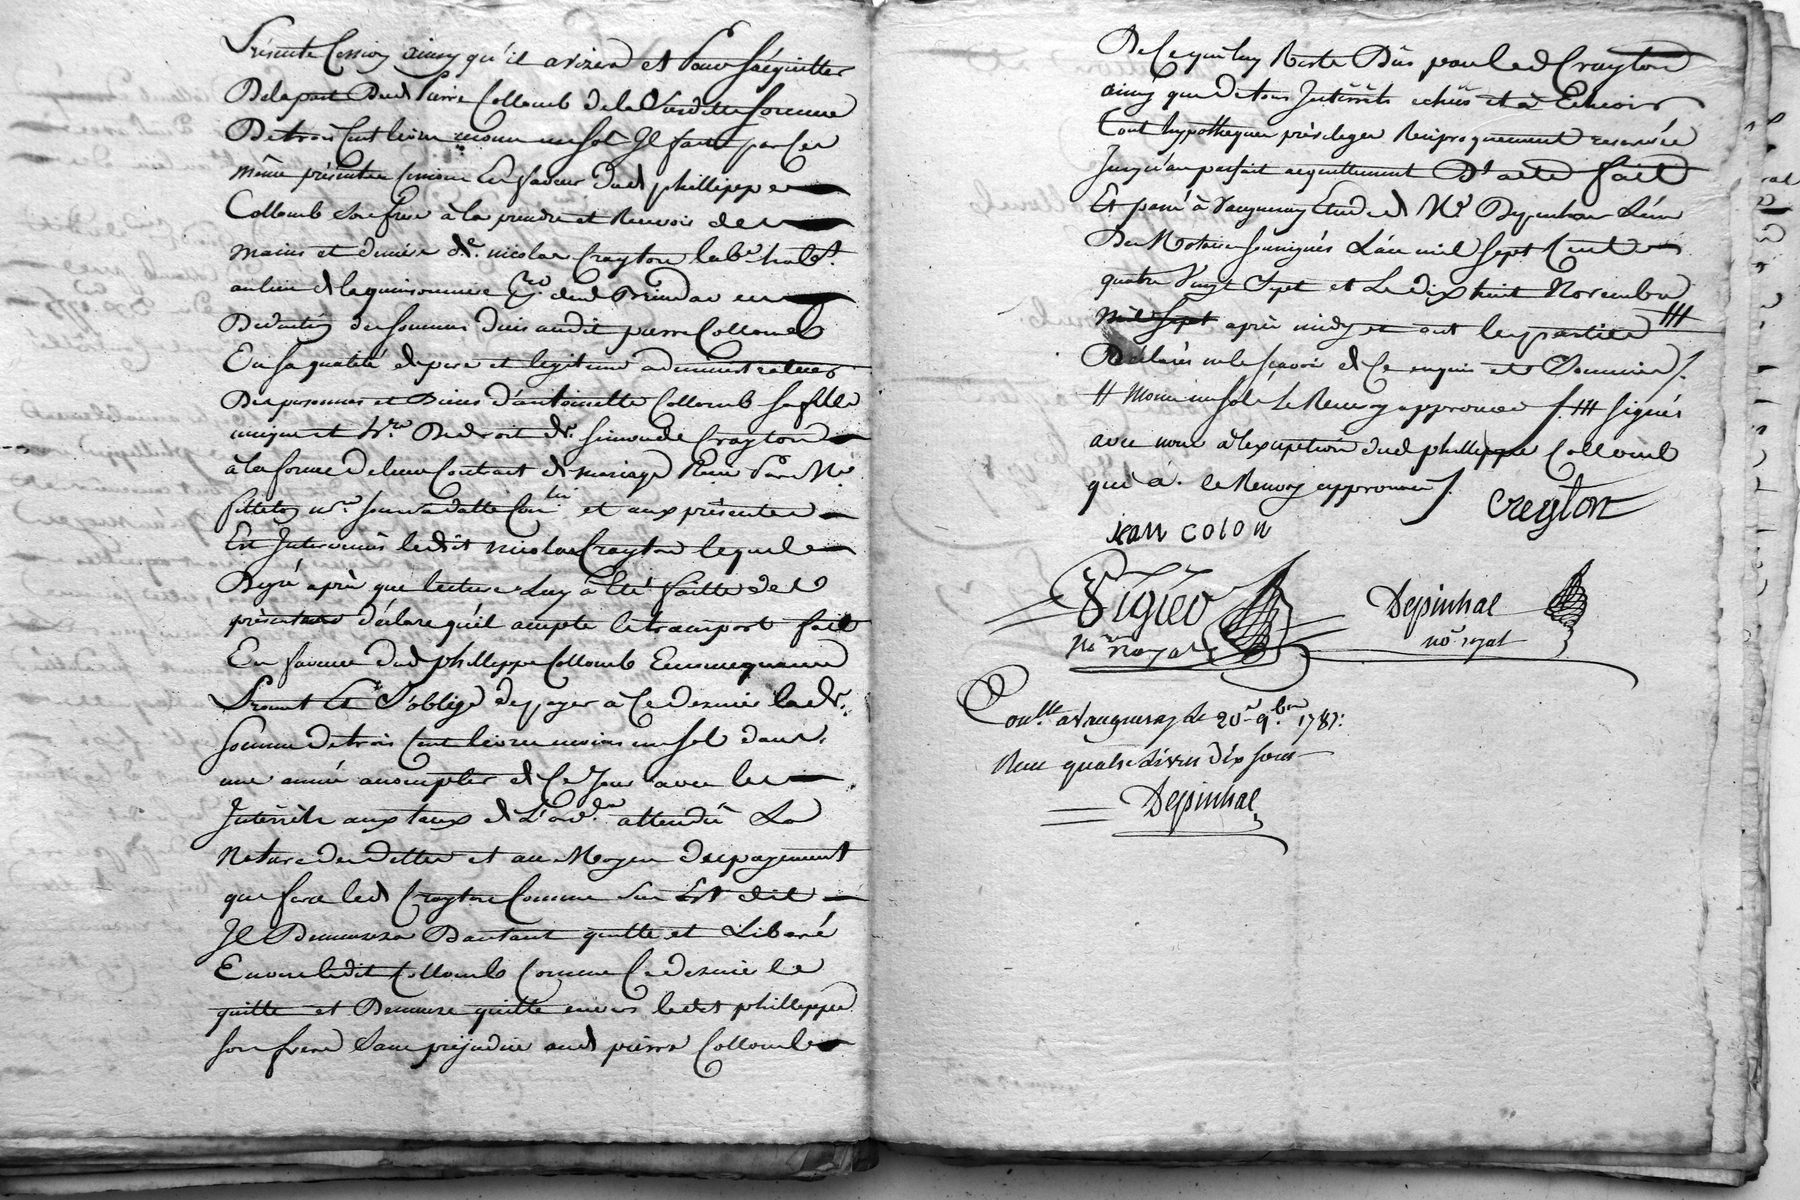 présente Cession ainsy qu'il avizera et pour s'acquitter
De la part Dud. pierre Collomb de la susditte somme
De trois Cent livres moins un sol Il fait par Ces
même présentes Cession En faveur dud phillippe
Collomb son frère à la prendre et Recevoir des
mains et deniers de nicolas Crayton lab.r habt.
au lieu de la guinsonniere
Déduction des sommes dües audit pierre Collomb
En sa qualité de pere et legitime administrateur
Des personnes et Biens d'antoinette Collomb sa fille
unique et h.re De droit de simonde Crayton
à la forme de leur Contract de mariage Reçu Par Me
et aux présentes
Est Intervenüs ledit nicolas Crayton lequel
De gré après que lecture Luy à été faitte des
présentes déclare qu'il accepte le transport fait
En faveur dud phillippe Collomb En conséquence
promet Et s'oblige de payer à Ce dernier lade.
somme de trois Cent livres moins un sol dans
une année à compter de Ce Jour avec les
Intérêts aux taux de L'ord.ce attendü La
Nature des dettes et au Moyen du payement
que fera led Crayton Comme sus Est dit
Il Demeurera D'autant quitte et Libéré
Envers ledit Collomb Comme Ce dernier le
quitte et Demeure quitte envers ledt phillippe
son frere sans préjudice aud pierre Collomb
De Ce qui luy Reste Düs par led Crayton
ainsy que de tous Intérêts echüs et à Echeoir
tout hypotheques privileges Reciproquement reservée
Jusqu'au parfait acquittement Dt acte fait
Et passé à Vaugneray Etude de Me Depinhac L'un
Des Notaires soussignés L'an mil sept Cent
quatre Vingt Sept et Le dix huit Novembre
mil sept après midy et ont les parties ///
Déclarés ne le sçavoir de Ce enquis et Sommés /.
// moins un sol. Le Renvoy approuvée /. /// signés
avec nous à l'exception dud phillippe Collomb
qui à. le Renvoy approuvée /.
Creyton
jean colon
Vigier
No.re Royal
Depinhac
no.re royal
Con.lle a Vaugneray le 20e 9.bre 1787:
Reçu quatre livres dix sous
Depinhac